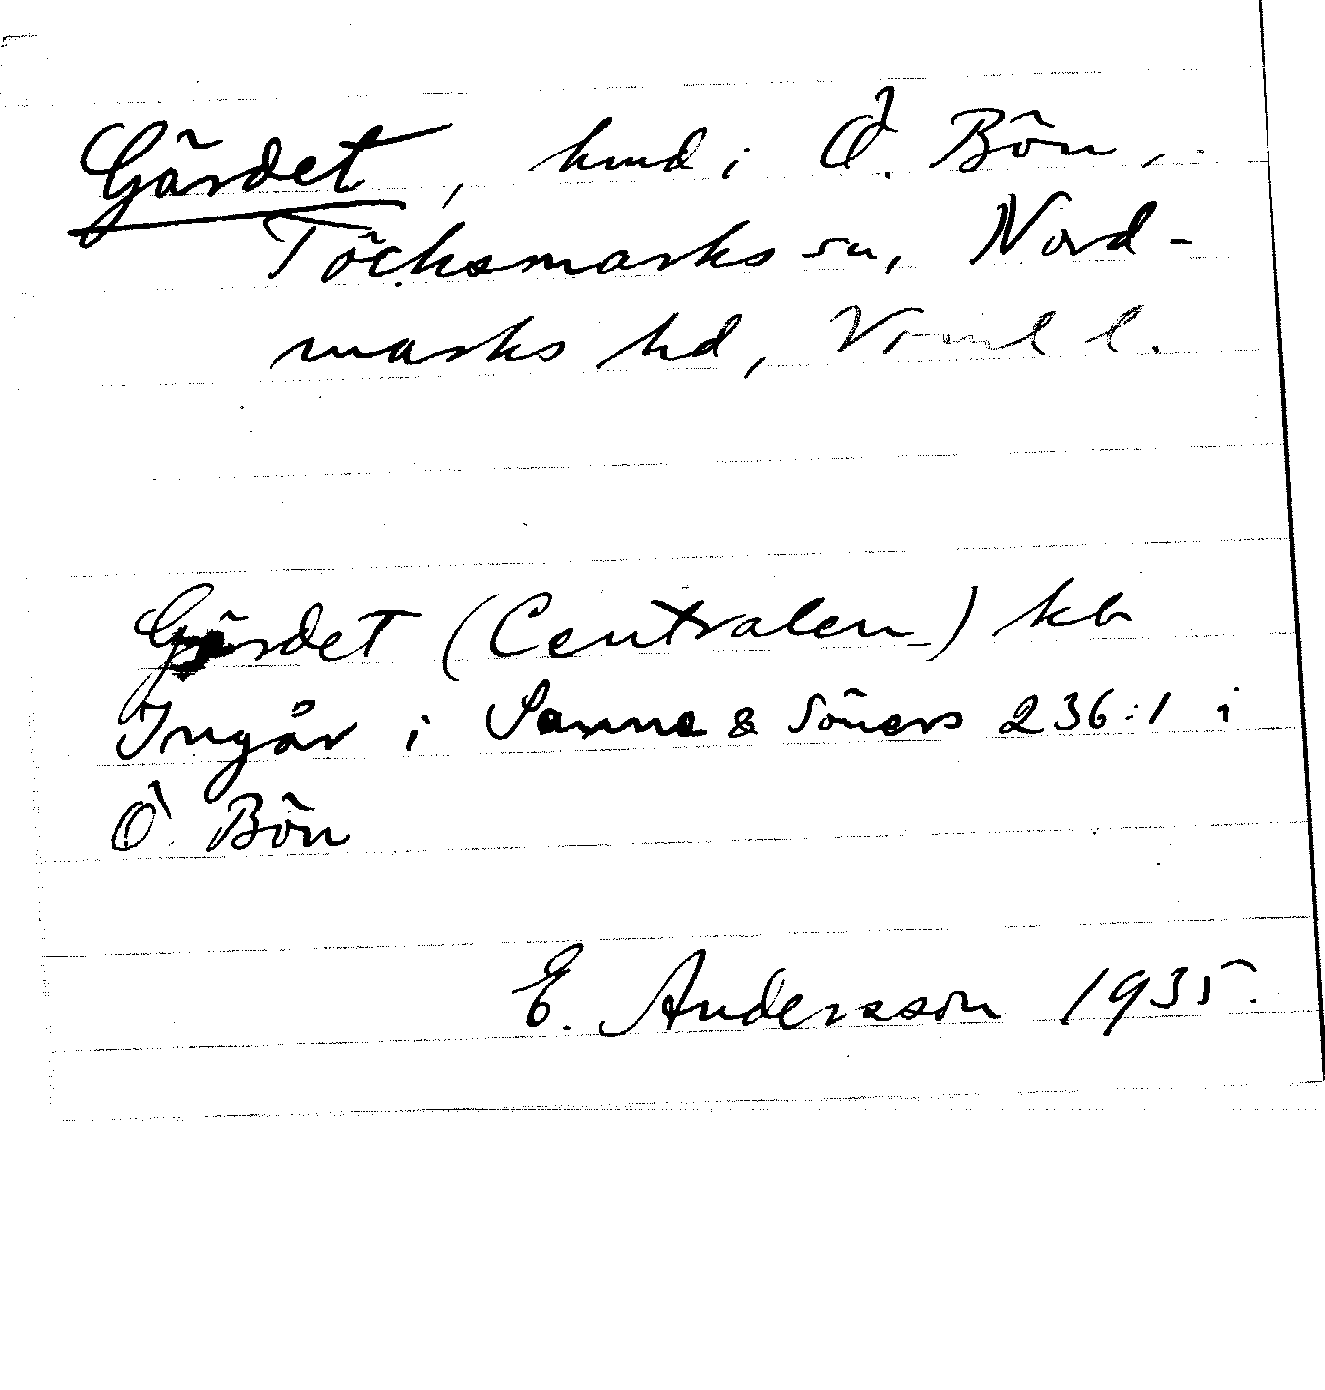 Gärdet, hmd i Ö. Bön,
Töcksmarks sn, Nord-
marks hd, Vrml l.
Gärdet (Centralen) kb
Ingår i Sanne & Söners 236:1 i
Ö. Bön
E. Andersson 1935.